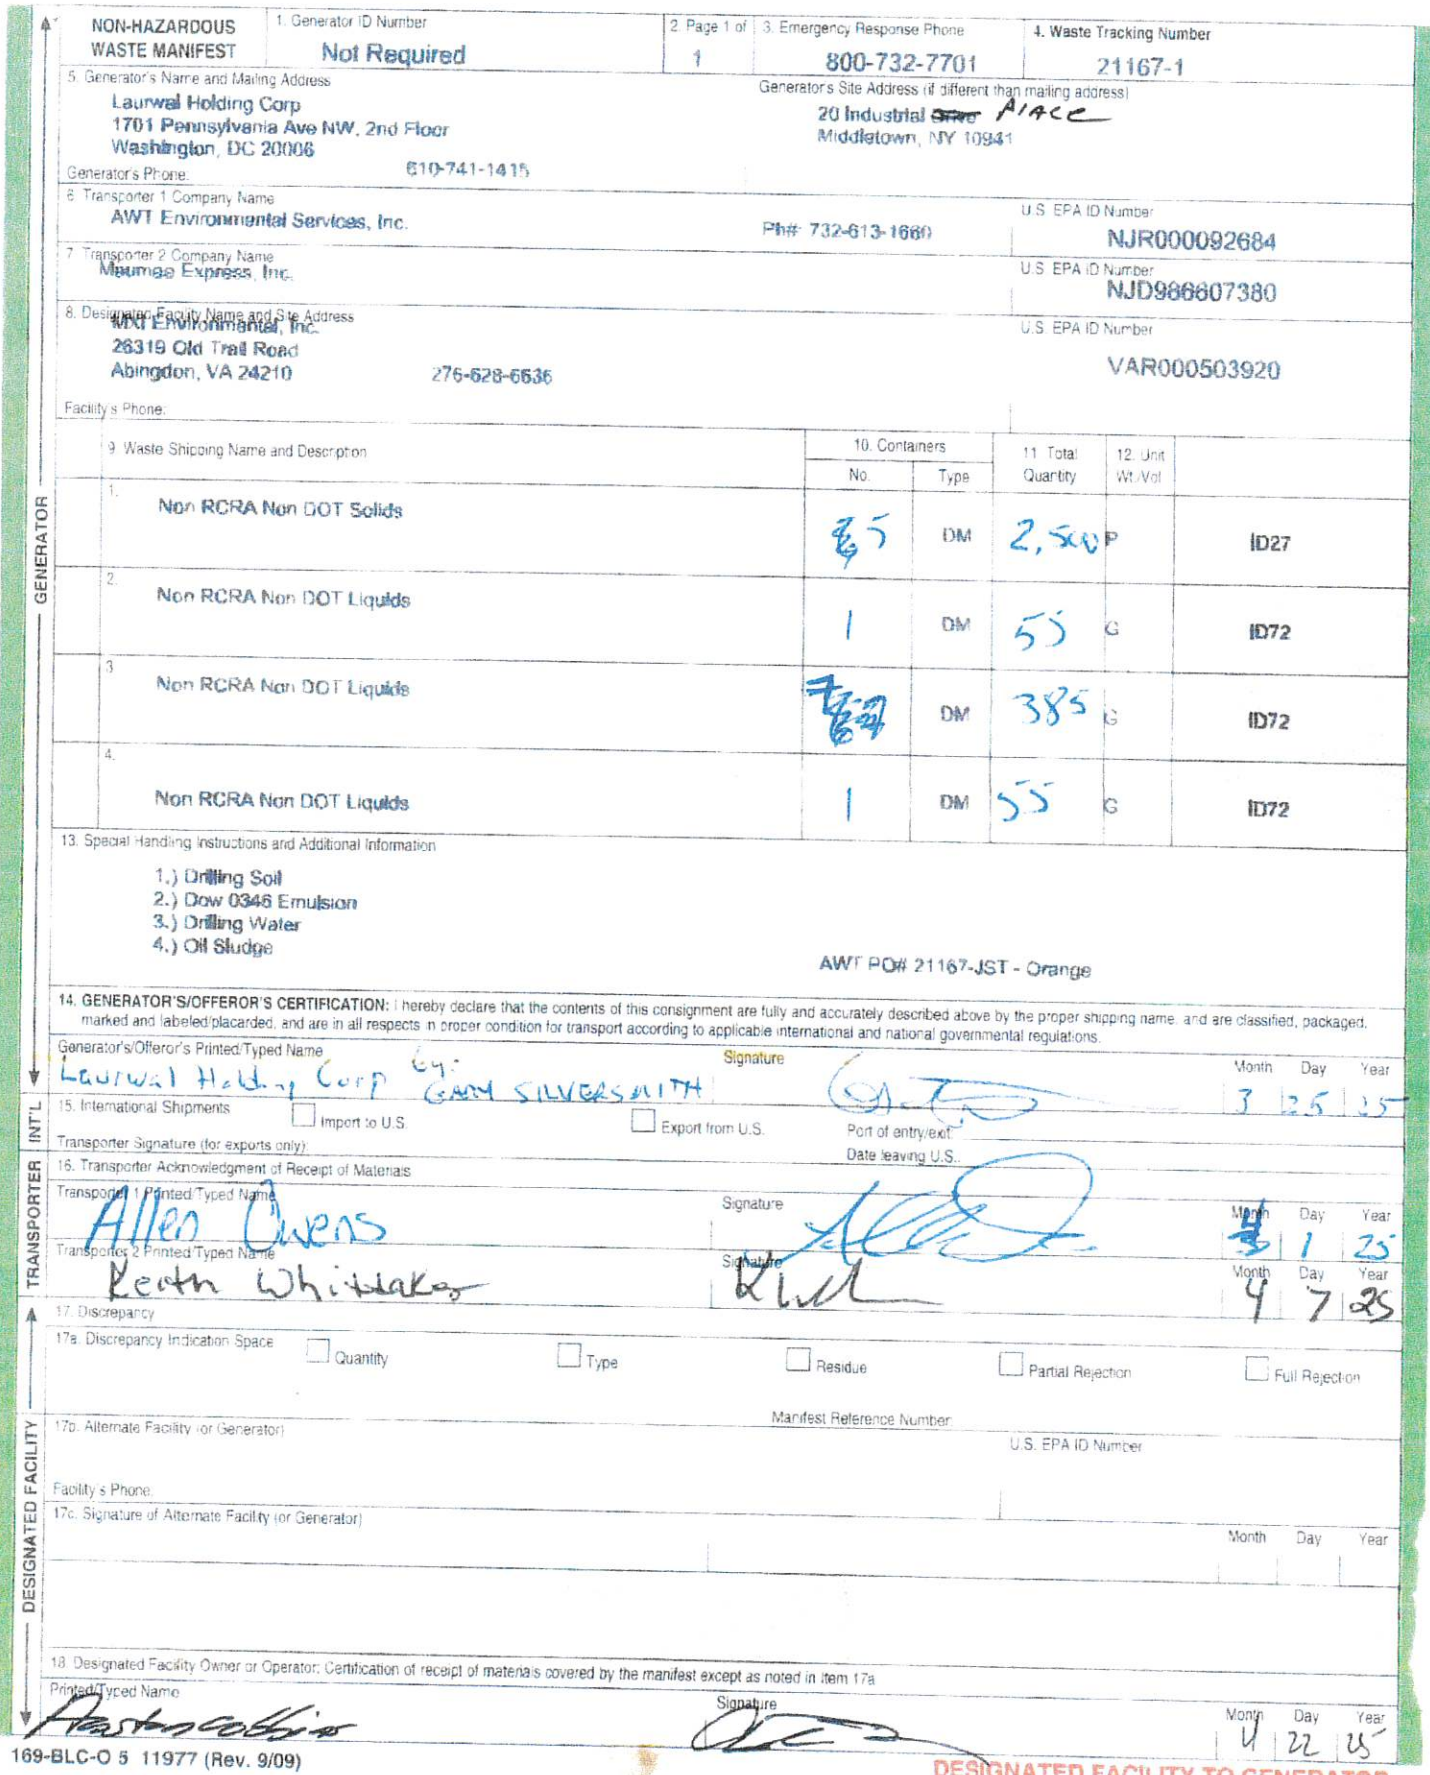 NON-HAZARDOUS WASTE MANIFEST
1. Generator ID Number
Not Required
2. Page 1 of
1
3. Emergency Response Phone
800-732-7701
4. Waste Tracking Number
21167-1
5. Generator's Name and Mailing Address
Laurwal Holding Corp
1701 Pennsylvania Ave NW, 2nd Floor
Washington, DC 20006
Generator's Phone:
610-741-1415
Generator's Site Address (if different than mailing address)
20 Industrial Drive Place
Middletown, NY 10941
6. Transporter 1 Company Name
AWT Environmental Services, Inc.
Ph#: 732-613-1660
U.S. EPA ID Number
NJR000092684
7. Transporter 2 Company Name
Maumee Express, Inc.
U.S. EPA ID Number
NJD986607380
8. Designated Facility Name and Site Address
MXI Environmental, Inc.
26319 Old Trail Road
Abingdon, VA 24210
276-628-6636
U.S. EPA ID Number
VAR000503920
Facility's Phone:
9. Waste Shipping Name and Description
10. Containers
No.
Type
11. Total Quantity
12. Unit Wt./Vol
1. Non RCRA Non DOT Solids 5 DM 2,500 P ID27
2. Non RCRA Non DOT Liquids 1 DM 55 G ID72
3. Non RCRA Non DOT Liquids 7 DM 385 G ID72
4. Non RCRA Non DOT Liquids 1 DM 55 G ID72
13. Special Handling Instructions and Additional Information
1.) Drilling Soil
2.) Dow 0346 Emulsion
3.) Drilling Water
4.) Oil Sludge
AWT PO# 21167-JST - Orange
14. GENERATOR'S/OFFEROR'S CERTIFICATION: I hereby declare that the contents of this consignment are fully and accurately described above by the proper shipping name, and are classified, packaged,
marked and labeled/placarded, and are in all respects in proper condition for transport according to applicable international and national governmental regulations.
Generator's/Offeror's Printed/Typed Name
Laurwal Holding Corp by: GARY SILVERSMITH
Signature
Month Day Year
3 25 25
15. International Shipments
Import to U.S.
Export from U.S.
Port of entry/exit:
Transporter Signature (for exports only):
Date leaving U.S.:
16. Transporter Acknowledgment of Receipt of Materials
Transporter 1 Printed/Typed Name
Allen Owens
Signature
Month Day Year
4 1 25
Transporter 2 Printed/Typed Name
Keith Whittaker
Signature
Month Day Year
4 7 25
17. Discrepancy
17a. Discrepancy Indication Space
Quantity
Type
Residue
Partial Rejection
Full Rejection
Manifest Reference Number:
17b. Alternate Facility (or Generator)
U.S. EPA ID Number
Facility's Phone:
17c. Signature of Alternate Facility (or Generator)
Month Day Year
18. Designated Facility Owner or Operator: Certification of receipt of materials covered by the manifest except as noted in Item 17a
Printed/Typed Name
Signature
Month Day Year
4 22 25
169-BLC-O 5 11977 (Rev. 9/09)
DESIGNATED FACILITY TO GENERATOR
GENERATOR
INT'L
TRANSPORTER
DESIGNATED FACILITY